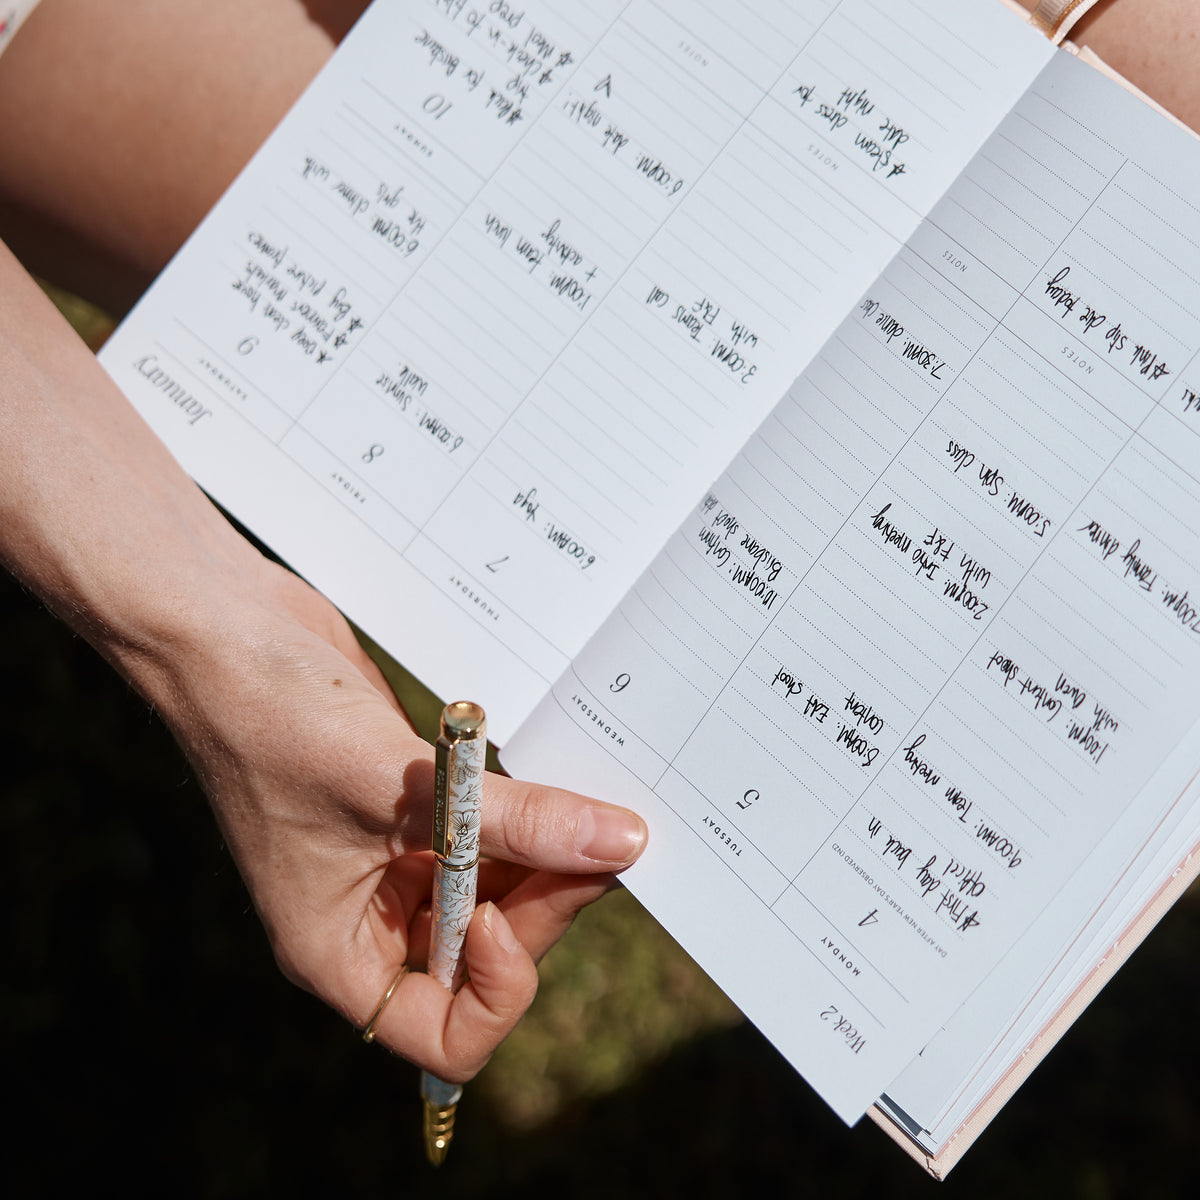 Week 2
MONDAY
4
DAY AFTER NEW YEAR'S DAY OBSERVED (NZ)
* First day back in
office!
9:00AM: Team meeting
1:00PM: Content shoot
with Owen
7:00PM: Family dinner
NOTES
* Pink slip due today
TUESDAY
5
8:00AM: Edit shoot
content
2:00PM: Intro meeting
with F&F
5:00PM: Spin class
NOTES
WEDNESDAY
6
10:00AM: Confirm
Brisbane shoot
7:30PM: dance
NOTES
THURSDAY
7
6:00AM: Yoga
3:00PM: Teams call
with F&F
NOTES
* Steam dress for
date night
FRIDAY
8
6:00AM: Sunrise
walk
1:00PM: team lunch
+ activity
6:00PM: date night!
NOTES
January
SATURDAY
9
* Deep clean house
* Farmers markets
* Buy picture frames
6:00PM: dinner with
the girls
SUNDAY
10
* Pack for Brisbane
trip
* Check-in to
* Meal prep
FOX & FALLOW